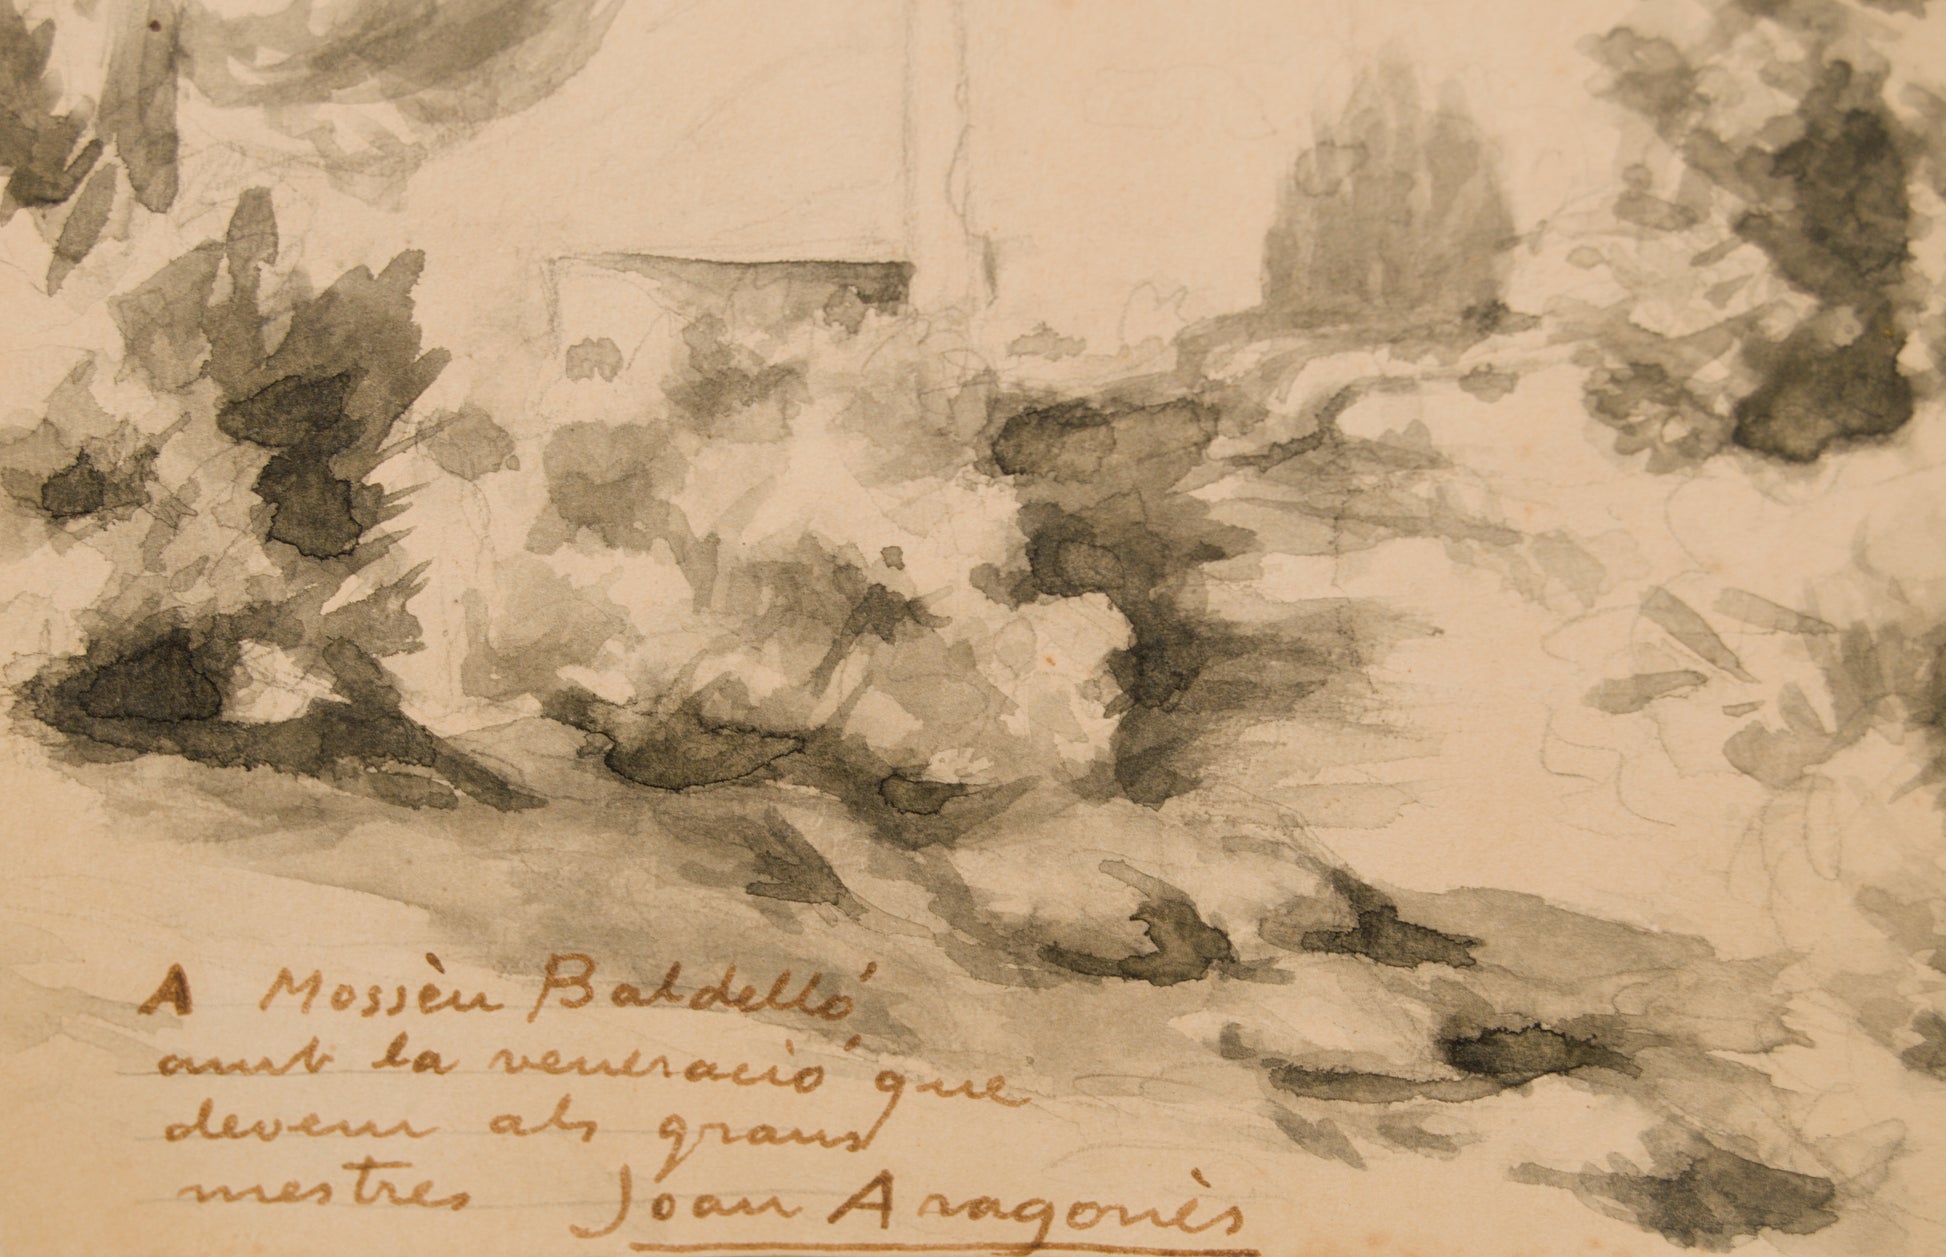 A Mossèn Baldelló
amb la veneració que
devem als grans
mestres Joan Aragonès